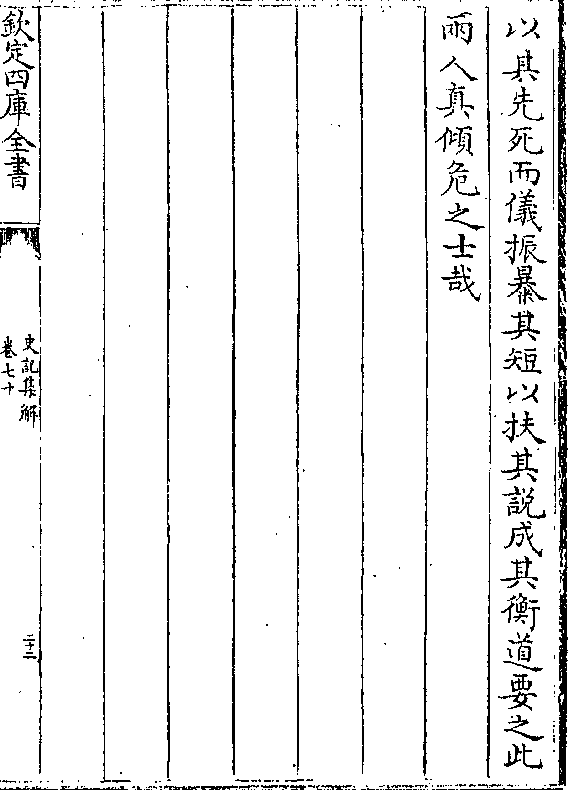 以其先死而儀振暴其短以扶其說成其衡道要之此
兩人真傾危之士哉
欽定四庫全書
史記集解
卷七十
二十二